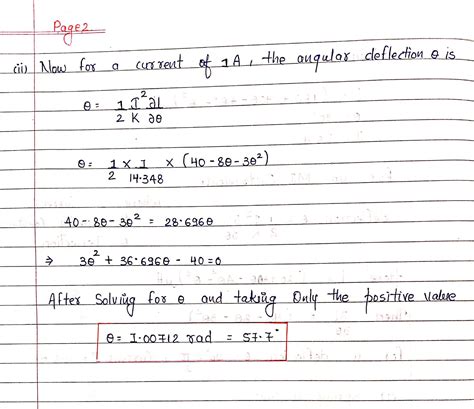 Page 2
(ii) Now for a current of 1A, the angular deflection θ is
θ = 1/2 I²/K ∂L/∂θ
θ = 1/2 × 1/14.348 × (40 - 8θ - 3θ²)
40 - 8θ - 3θ² = 28.696θ
⇒ 3θ² + 36.696θ - 40 = 0
After Solving for θ and taking Only the positive value
θ = 1.00712 rad = 57.7°